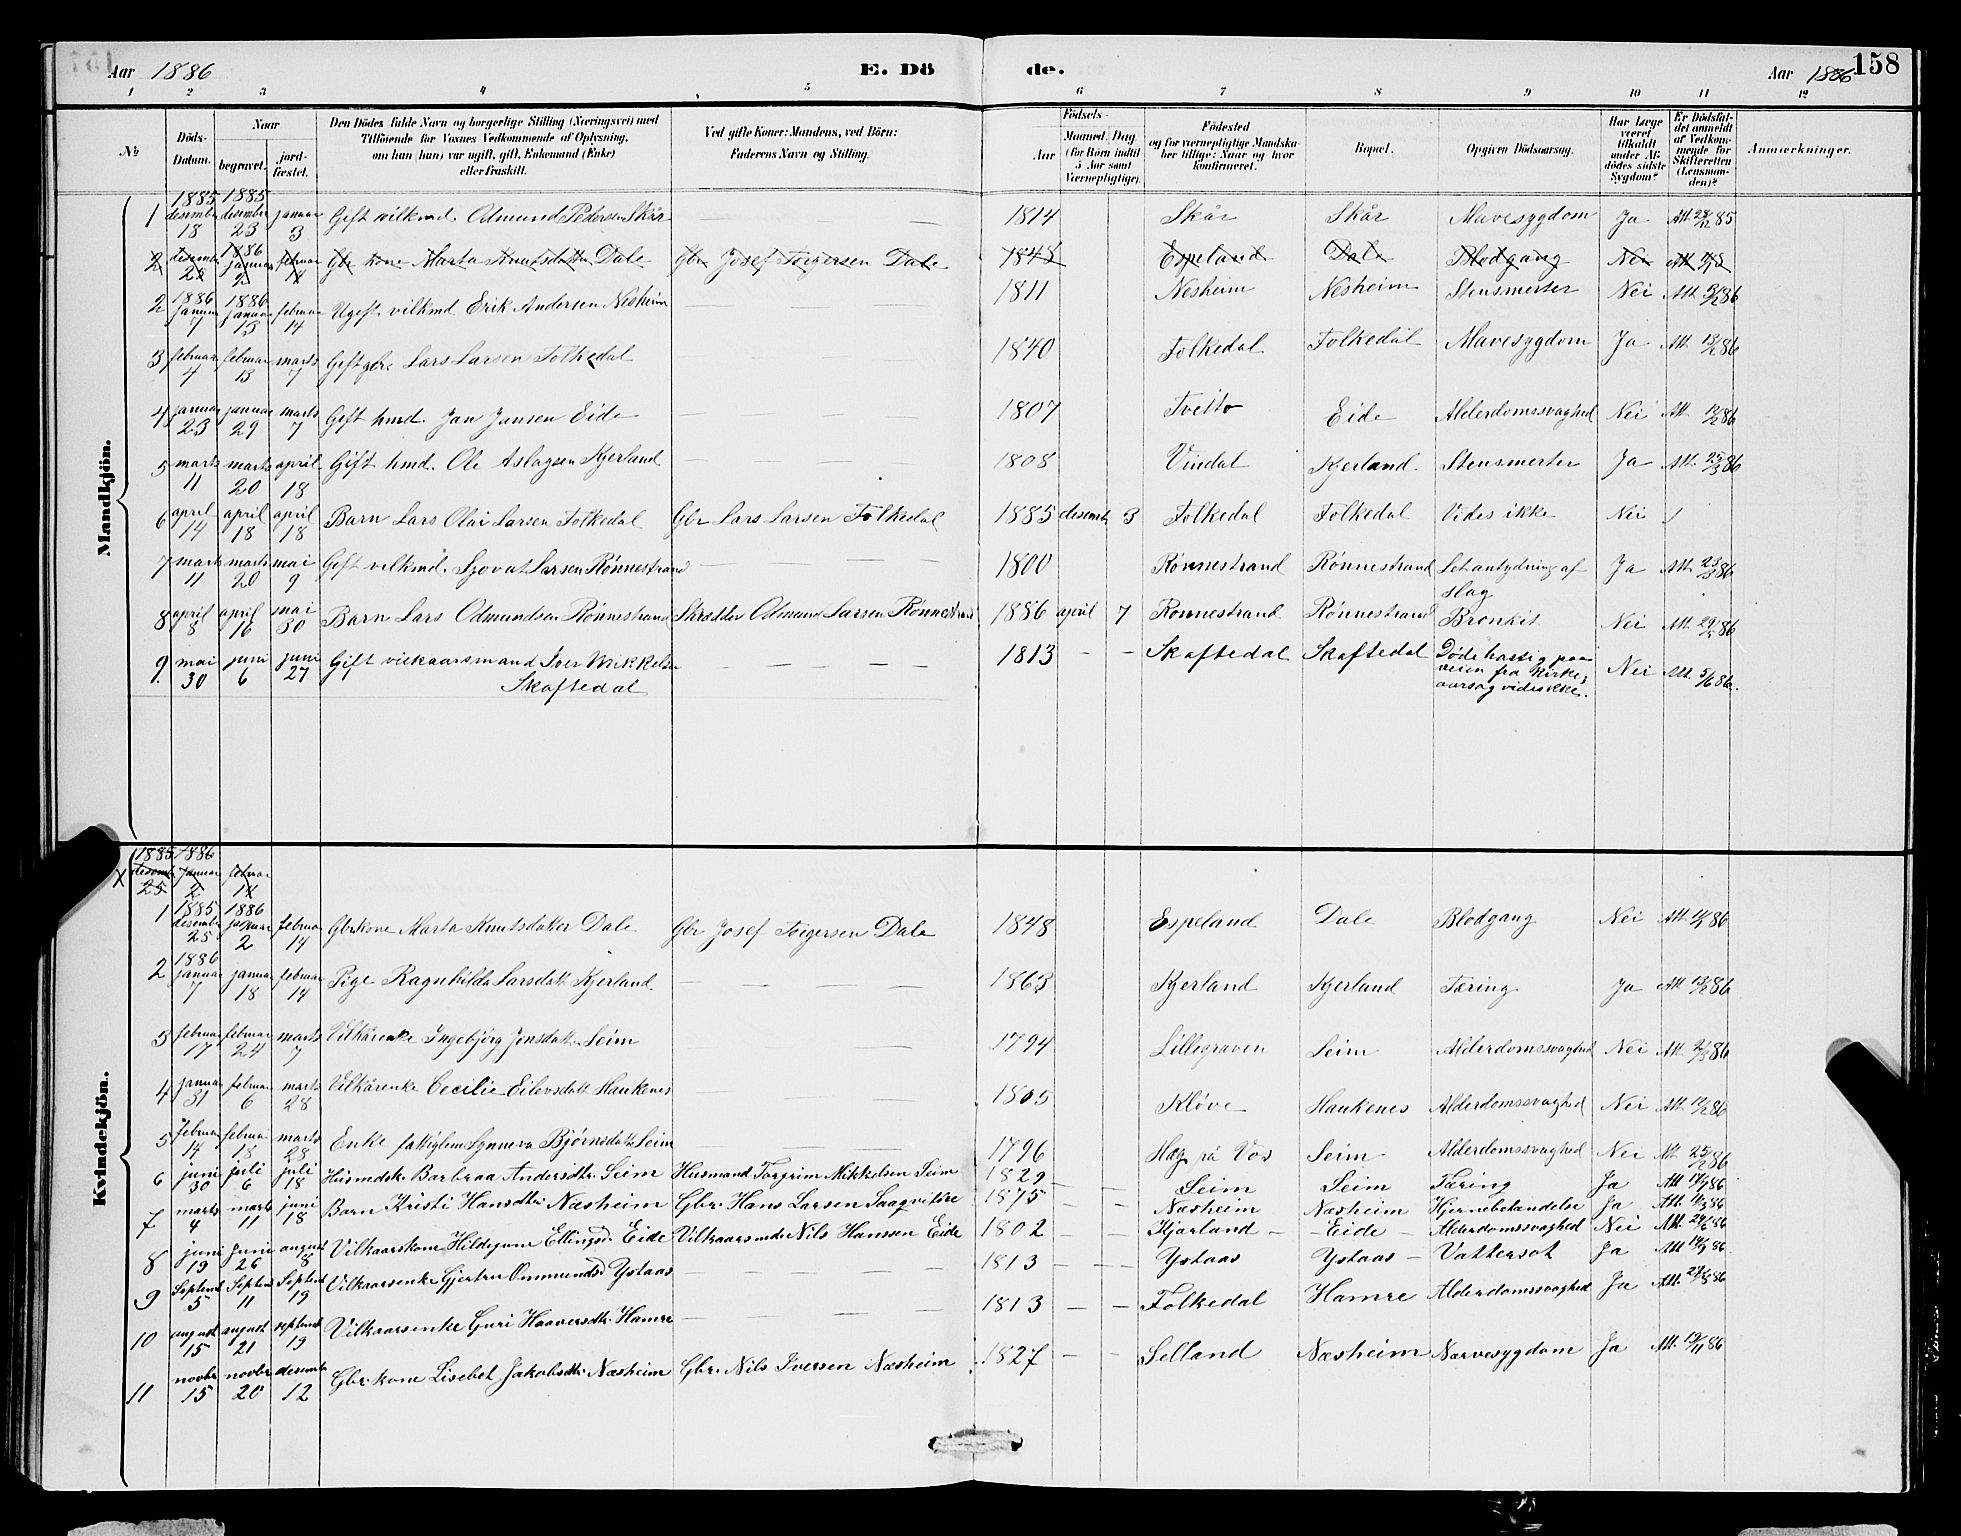 Aar 1886 E. Dö de. Aar 1886 158
1 2 3 4 5 6 7 8 9 10 11 12
№ Döds-Datum. Naar begravet. jordfæstet. Den Dödes fulde Navn og borgerlige Stilling (Næringsvei) med Tilföiende for Voxnes Vedkommende af Oplysning, om han (hun) var ugift, gift, Enkemand (Enke) eller fraskilt. Ved gifte Koner: Mandens, ved Börn: Faderens Navn og Stilling. Födsels- Aar Maaned. Dag (for Börn indtil 5 Aar samt Værnepligtige). Födested og for værnepligtige Mandskaber tillige: Naar og hvor konfirmeret. Bopæl. Opgiven Dödsaarsag. Har Læge været tilkaldt under Afdödes sidste Sygdom? Er Dödsfaldet anmeldt af Vedkommende for Skifteretten (Lensmanden)? Anmærkninger.
Mandkjön.
1 1885 desember 18 1885 desember 23 januar 3 Gift vilkmd. Odmund Pedersen Skår — — 1814 Skår Skår Mavesygdom Ja Att. 28/12 85
2 desember 25 1886 januar 2 februar 14 Gbr kone Marta Knutsdatter Dale Gbr Josef Torgersen Dale 1848 Espeland Dale Blodgang Nei Att.
2 1886 januar 7 1886 januar 13 februar 14 Ugift vilkmd Erik Andersen Nesheim — — 1811 Nesheim Nesheim Stensmerter Nei Att. 86
3 februar 4 februar 13 marts 7 Gift gbr. Lars Larsen Folkedal 1840 Folkedal Folkedal Mavesygdom Ja Att. 13/2 86
4 januar 23 januar 29 marts 7 Gift hmd. Jan Jansen Eide — — 1807 Tveito Eide Alderdomssvaghed Nei Att. 12/2 86
5 marts 11 marts 20 april 18 Gift hmd. Ole Aslagsen Kjerland — — 1808 Vindal Kjerland Stensmerter Ja Att. 25/3 86
6 april 14 april 18 april 18 Barn Lars Olai Larsen Folkedal Gbr Lars Larsen Folkedal 1885 desemb. 3 Folkedal Folkedal Vides ikke Nei /
7 marts 11 marts 20 mai 9 Gift vilkmd. Sjovat Larsen Rønnestrand — — — 1800 Rønnestrand Rønnestrand Let antydning af slag Ja Att. 23/3 86
8 april 8 april 16 mai 30 Barn Lars Odmundsen Rønnestrand Skrædder Odmund Larsen Rønnestrand 1886 april 7 Rønnestrand Rønnestrand Bronkit Nei Att. 86
9 mai 30 juni 6 juni 27 Gift vilkaarsmand Iver Mikkelsen Skaftedal — — — — 1813 - - Skaftedal Skaftedal Døde hastig paa veien fra Kirke, aarsag vides ikke. Nei Att. 5/6 86.
Kvindekjön.
X 1885 desemb. 25 1886 januar 2 februar 14
1 1885 desember 25 1886 januar 2 februar 14 Gbrkone Marta Knutsdatter Dale Gbr Josef Torgersen Dale 1848 Espeland Dale Blodgang Nei Att. 86
2 1886 januar 7 januar 18 februar 14 Pige Ragnhilda Larsdatt. Kjerland — — — — 1863 Kjerland Kjerland Tæring Ja Att. 13/2 86
3 februar 17 februar 24 marts 7 Vilkårenke Ingebjörg Jonsdatt. Seim — — 1794 Lillegraven Seim Alderdomssvaghed Nei Att. 86
4 januar 31 februar 6 marts 28 Vilkårenke Cecilie Eilevsdatt Haukenes — — — 1805 Kløve Haukenes Alderdomssvaghed Nei Att. 86
5 februar 14 februar 18 marts 28 Enke fattiglem Synneva Bjørnsdatt. Seim — — — 1796 Hæg på Vos Seim Alderdomssvaghed Nei Att. 86
6 juni 30 juli 6 juli 18 Husmdsk. Barbraa Andersdtr. Seim Husmand Torgrim Mikkelsen Seim 1829 — — Seim Seim Tæring Ja Att. 86
7 marts 4 marts 11 juni 18 Barn Kristi Hansdtr. Næsheim Gbr. Hans Larsen Saaqvitne 1875 — — Næsheim Næsheim Hjernebetændelse Ja Att. 86
8 juni 19 juni 26 august 8 Vilkaarskone Hildegunn Ellingsd. Eide Vilkaarsmd. Nils Hansen Eide 1802 — — Kjærland — Eide — Alderdomssvaghed Nei Att. 86
9 Septemb 5 Septemb 11 Septemb 19 Vilkaarsenke Gjertru Ommundsd Ystaas — — — — 1813 — — Ystaas Ystaas — Vattersot Ja Att. 86
10 august 15 august 21 septemb 19 Vilkaarsenke Guri Haaversdtr. Hamre — — — — 1813 — — Folkedal Hamre Alderdomssvaghed Ja Att. 86
11 novbr 15 novbr 20 desembr 12 Gbr. kone Lisebet Jakobsdtr. Næsheim Gbr. Nils Iversen Næsheim 1827 — — Selland Næsheim Nærvesygdom Ja Att. 19/11 86